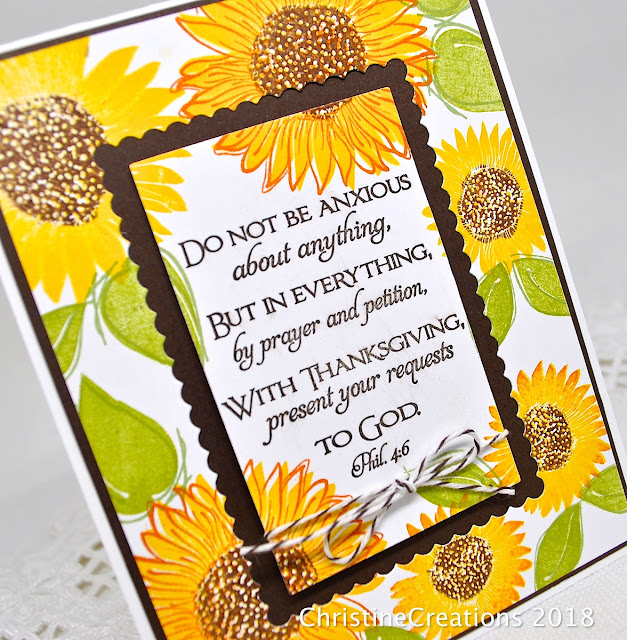 DO NOT BE ANXIOUS
about anything,
BUT IN EVERYTHING,
by prayer and petition,
WITH THANKSGIVING,
present your requests
TO GOD.
Phil. 4:6
ChristineCreations 2018